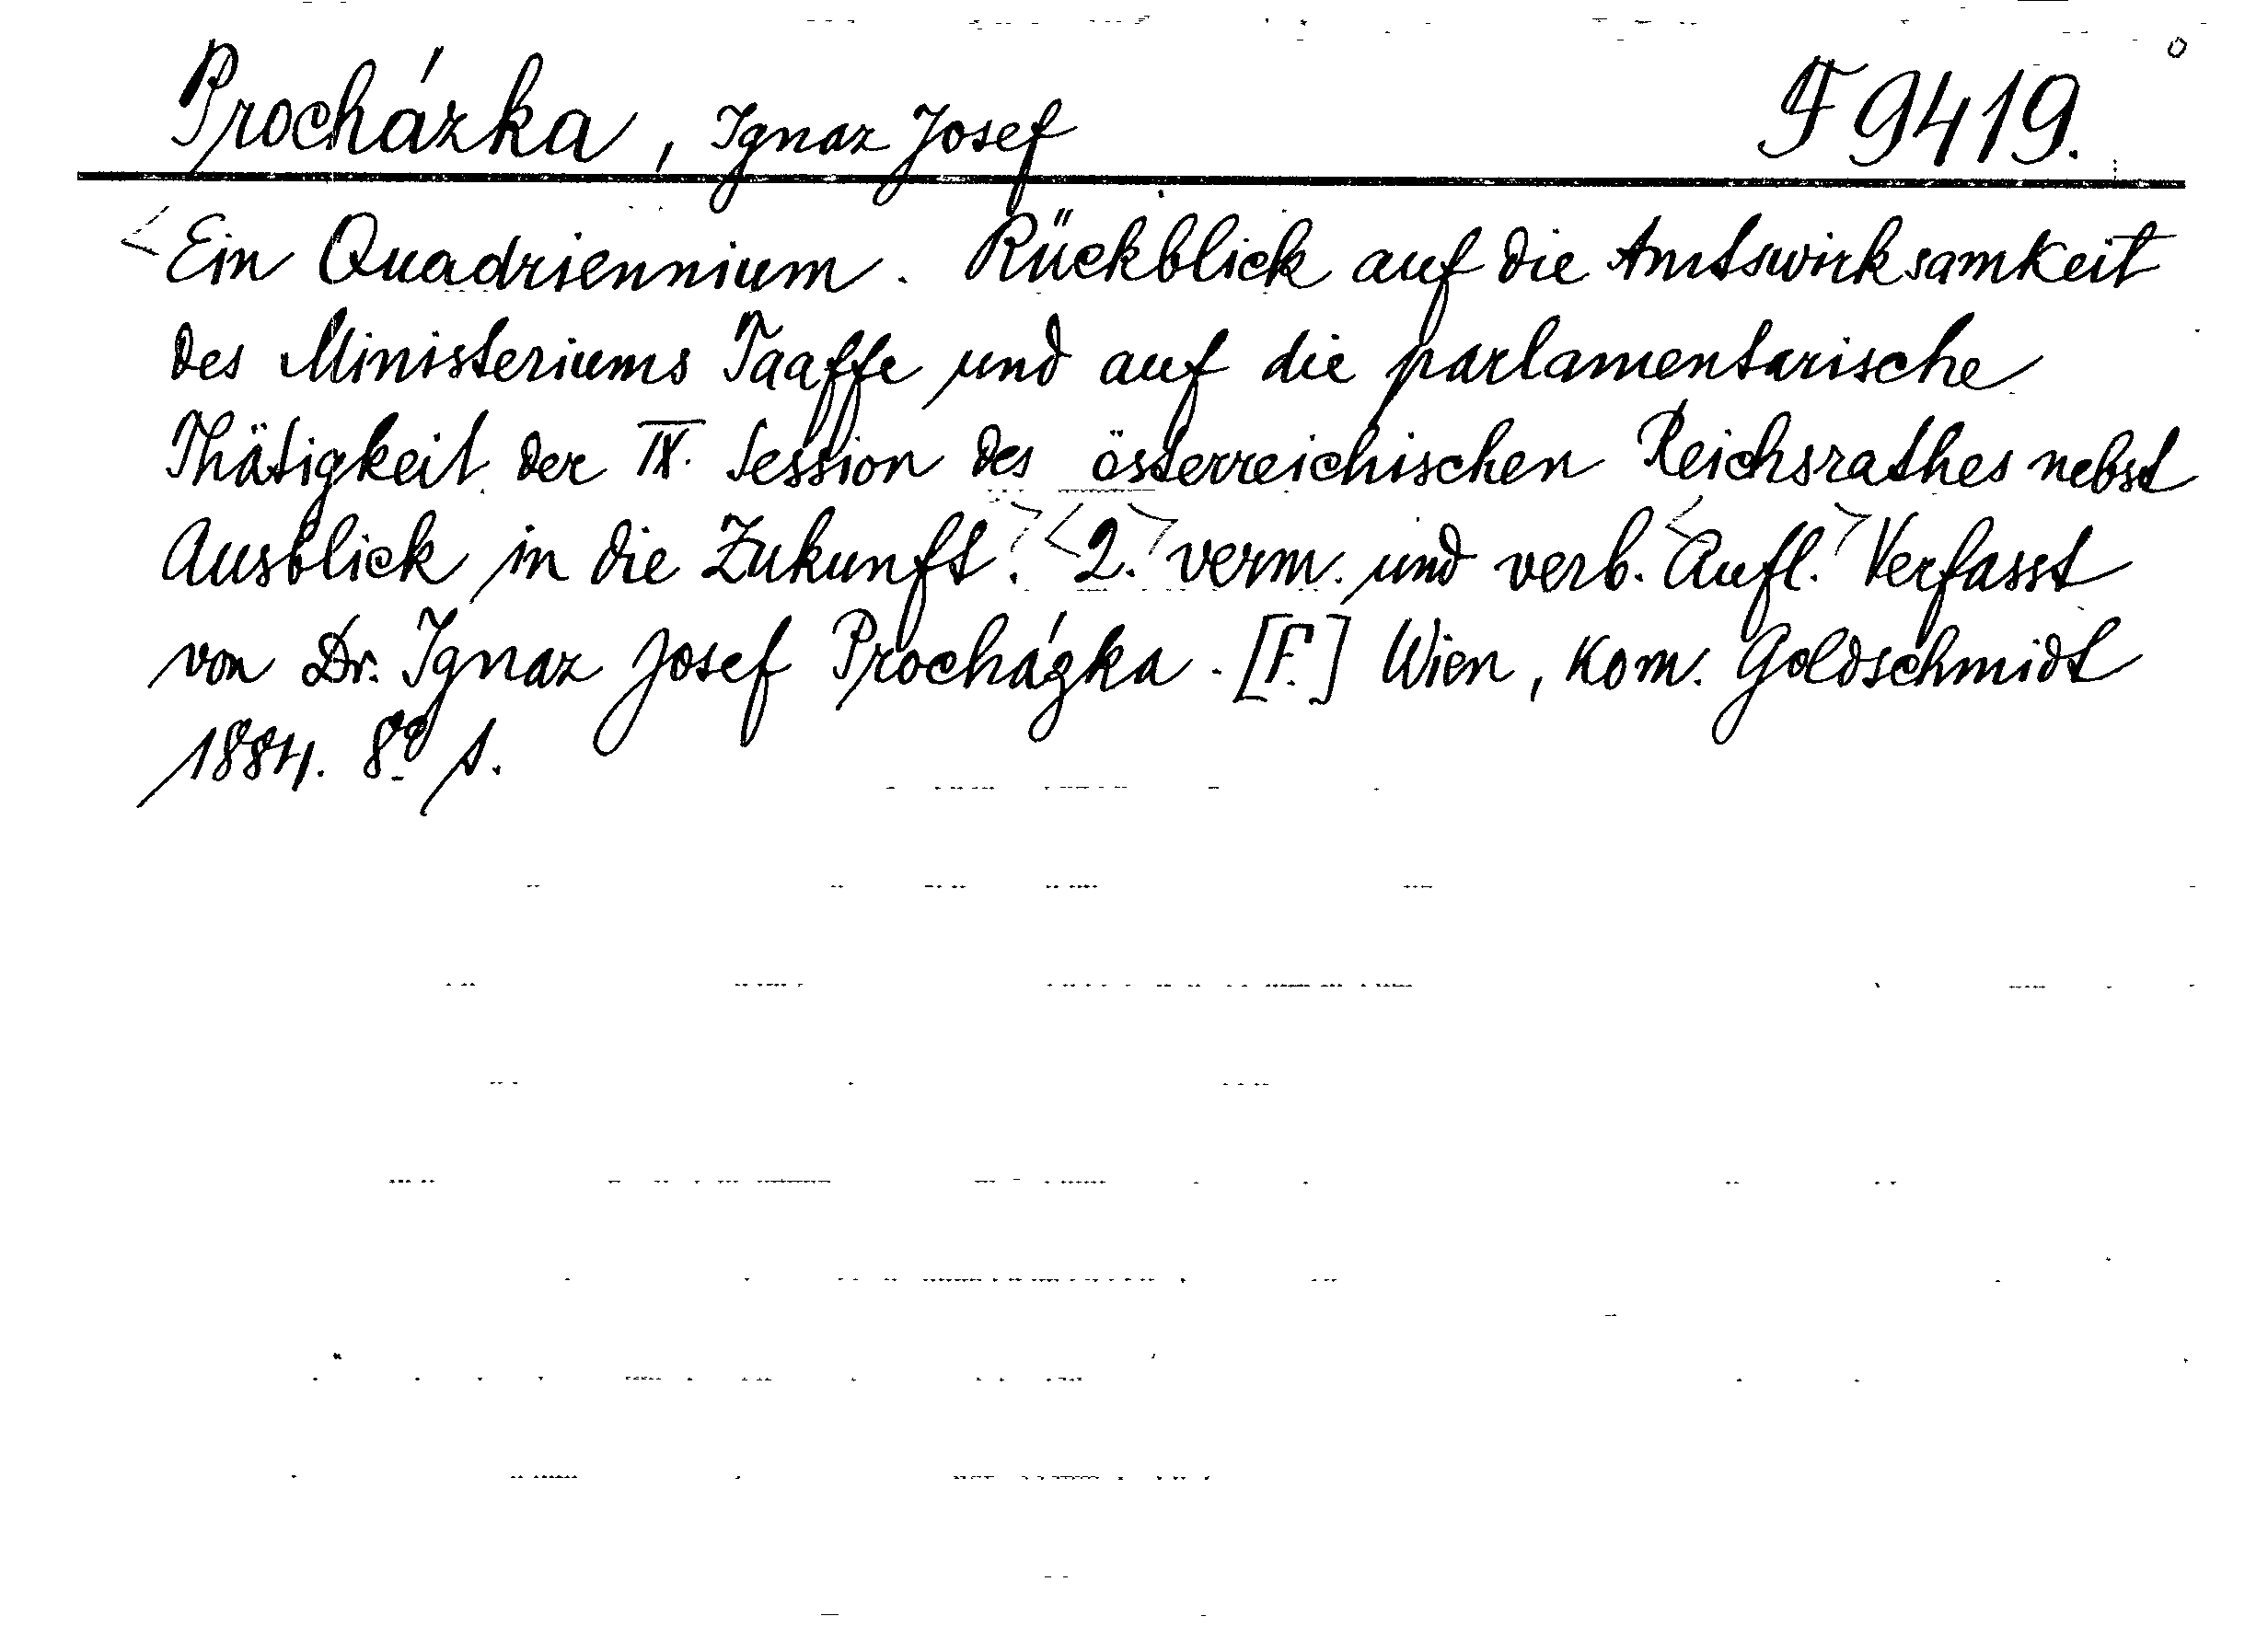 Procházka, Ignaz Josef F 9419.
<Ein Quadriennium. Rückblick auf die Amtswirksamkeit
des Ministeriums Taaffe und auf die parlamentarische
Thätigkeit der IX. Session des österreichischen Reichsrathes nebst
Ausblick in die Zukunft.> <2.> verm. und verb. <Aufl.> Verfasst
von Dr. Ignaz Josef Procházka. [F.] Wien, Kom. Goldschmidt
1884. 8° s.